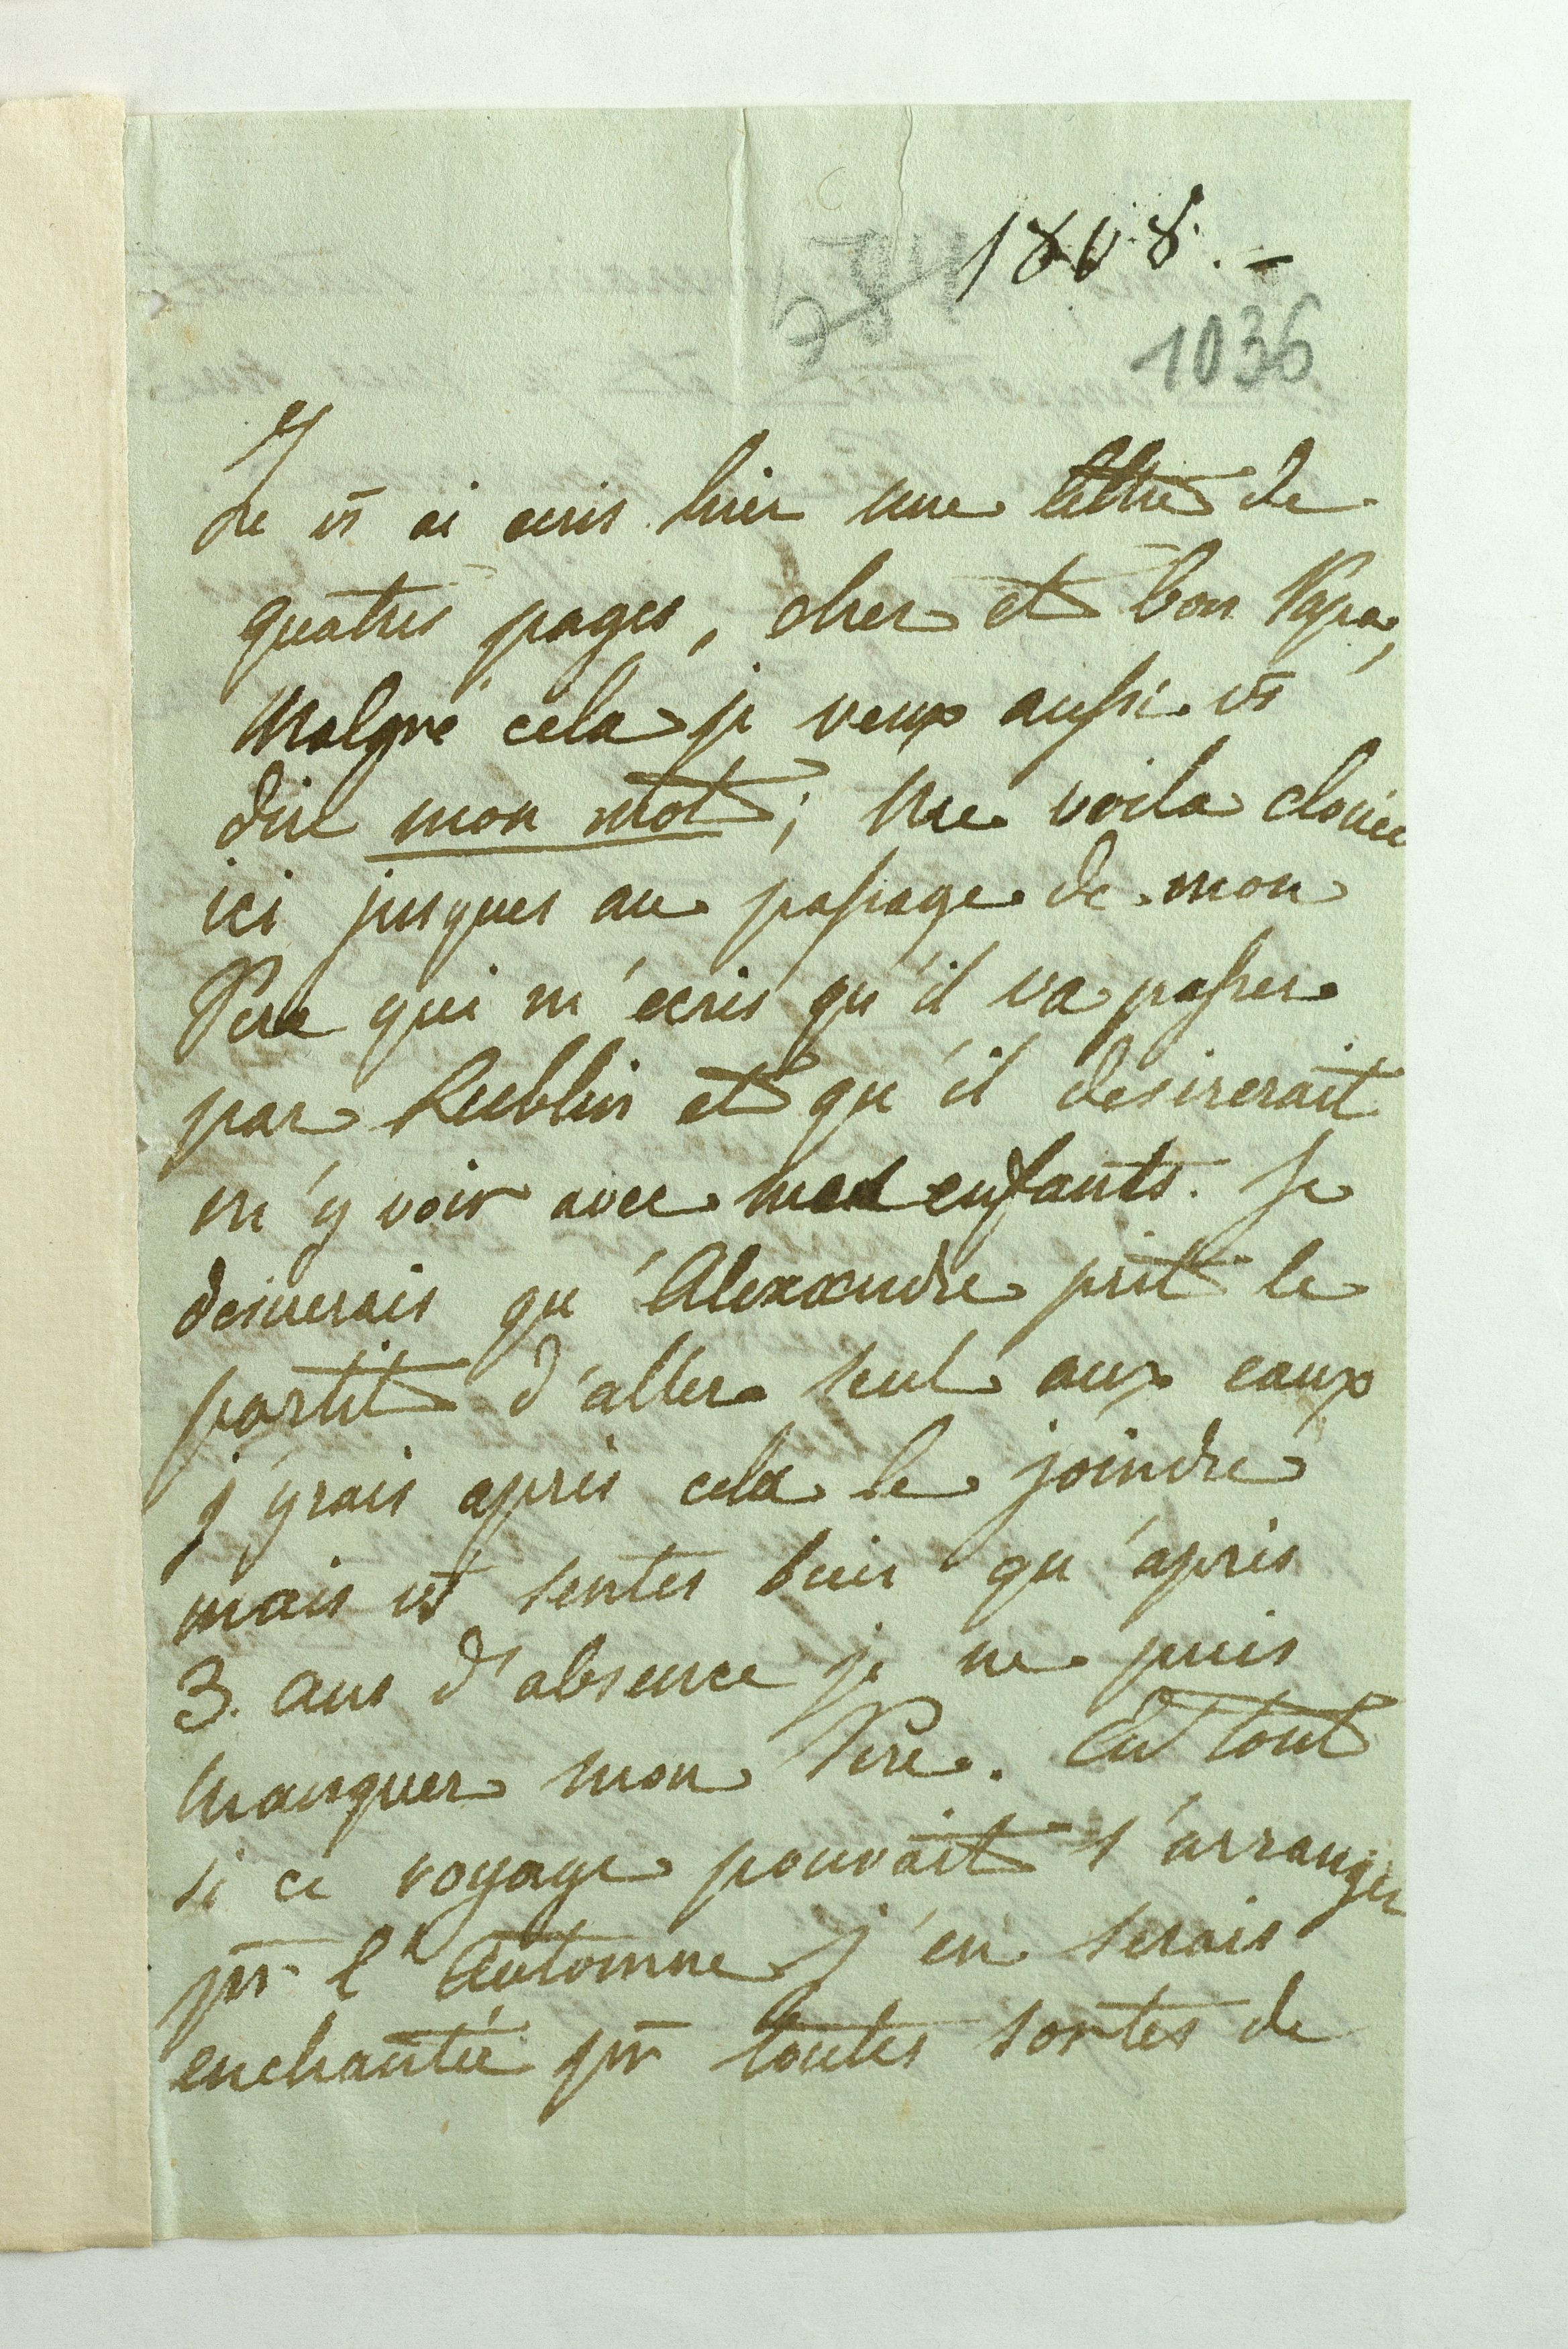 1808. -
784
1036
Je vs ai ecris hier une lettre de
quatres pages, cher et bon Papa,
Malgré cela je veux aussi vs
dire mon mot; Me voila clouée
ici jusques au passage de mon
Pere qui m'ecris qu'il va passer
par Lublin et qu'il desirerait
m'y voir avec mes enfants. Je
desirerais qu'Alexandre prit le
partit d'aller seul aux eaux
j'yrais apres cela le joindre
mais vs sentes bien qu'apres
3. ans d'absence je ne puis
manquer mon Pere. En tout
si ce voyage pouvait s'arranger
pr l'Automne j'en serais
enchantée pr toutes sortes de